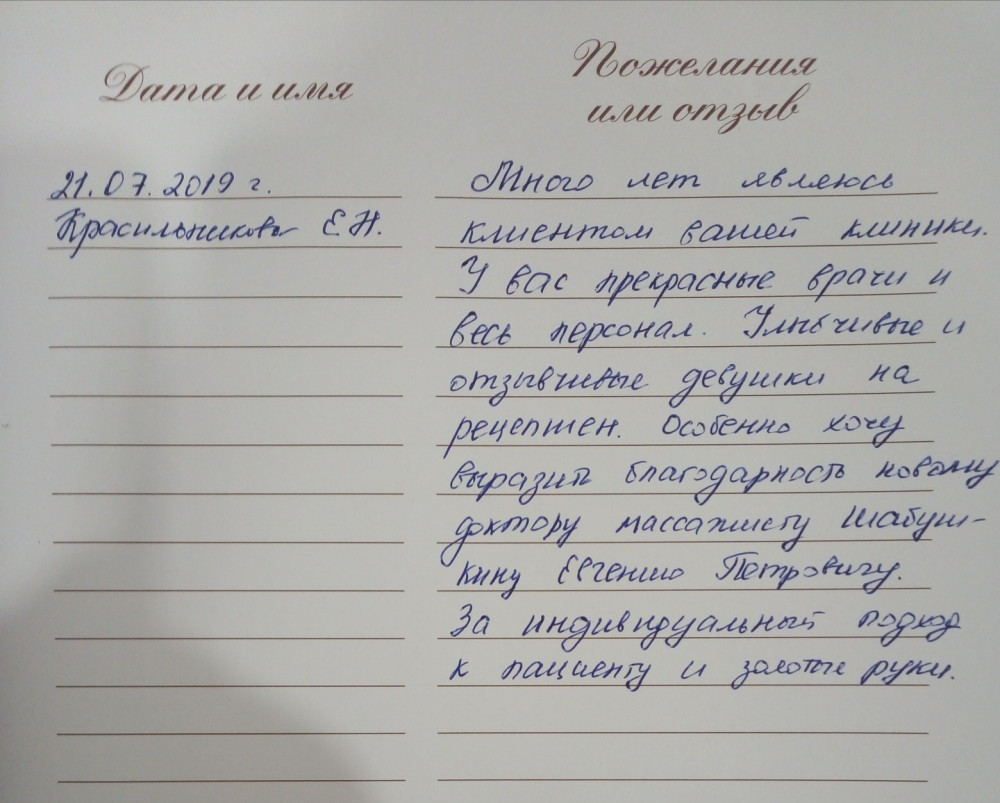 Дата и имя
Пожелания
или отзыв
21.07.2019 г.
Красильникова Е Н.
Много лет являюсь
клиентом вашей клиники.
У вас прекрасные врачи и
весь персонал. Улыбчивые и
отзывчивые девушки на
рецепшен. Особенно хочу
выразить благодарность новому
доктору массажисту Шабуш-
кину Евгению Петровичу.
За индивидуальный подход
к пациенту и золотые руки.